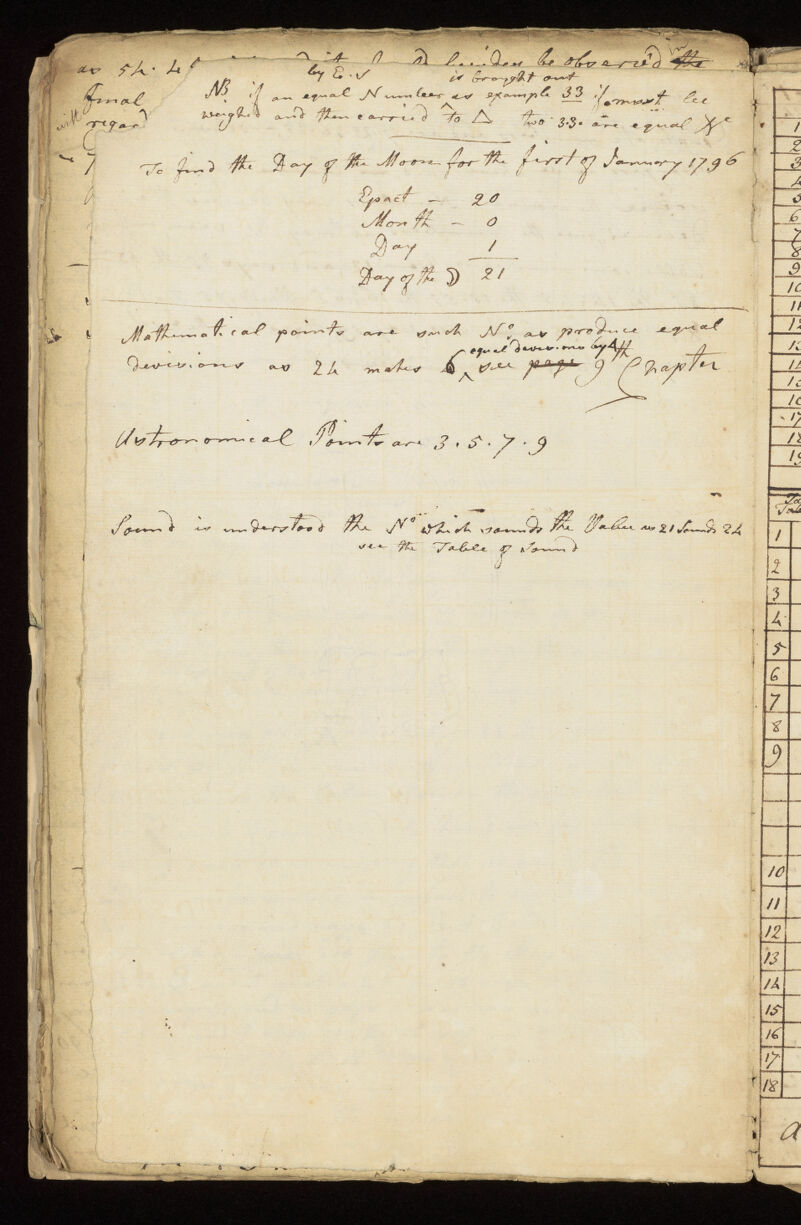 as 54. 4 be observed in the
final by Eo. S is brought out
with regard NB if an equal Number as example 33 it must be
weighed and then carried ^ to △ two 3.3. are equal &c
To find the Day of the Moon for the first of January 1796
Epact — 20
Month — 0
Day 1
Day of the ☽ 21
Mathematical points are such No. as produce equal
equal devisions by 4
devisions as 24 makes 6 ^ see page 9th Chapter
Astronomical Points are 3 . 5 . 7 . 9
Sound is understood the No. which sounds the Value as 21 Sounds 24
see the Table of Sound
1
2
3
4
5
6
7
8
9
10
11
12
13
14
15
16
17
18
19
1
2
3
4
5
6
7
8
9
10
11
12
13
14
15
16
17
18